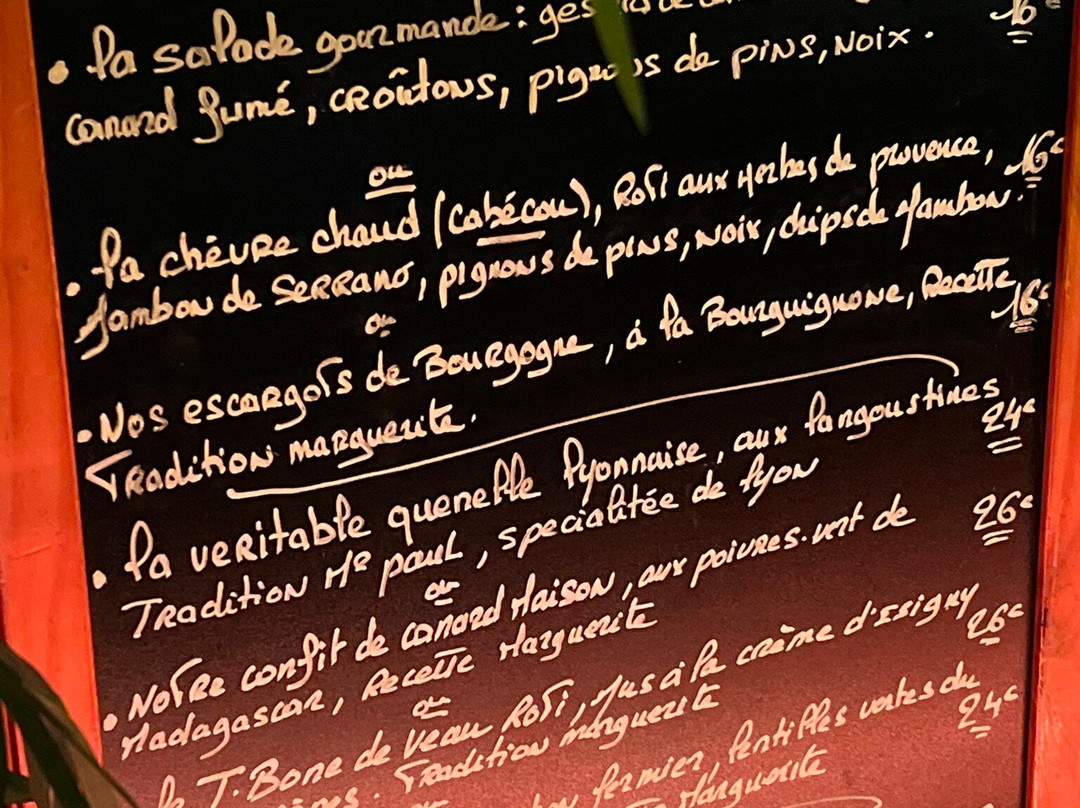 • la salade gourmande : 16€
canard fumé, croûtons, pignons de pins, noix.
ou
• la chèvre chaud (Cabécou), Roti aux Herbes de provence, 16€
Jambon de Serrano, pignons de pins, noix, chips de Jambon.
ou
• Nos escargots de Bourgogne, á la Bourguignone, Recette 16€
Tradition marguerite.
• la veritable quenelle lyonnaise, aux langoustines 24€
Tradition Me paul, specialitée de lyon
ou
• Notre confit de canard Maison, aux poivres vert de 26€
Madagascar, Recette Marguerite
ou
le T.Bone de Veau Roti, Jus á la crème d'Issigny 26€
Tradition marguerite
ou fermier, lentilles vertes du 24€
Marguerite